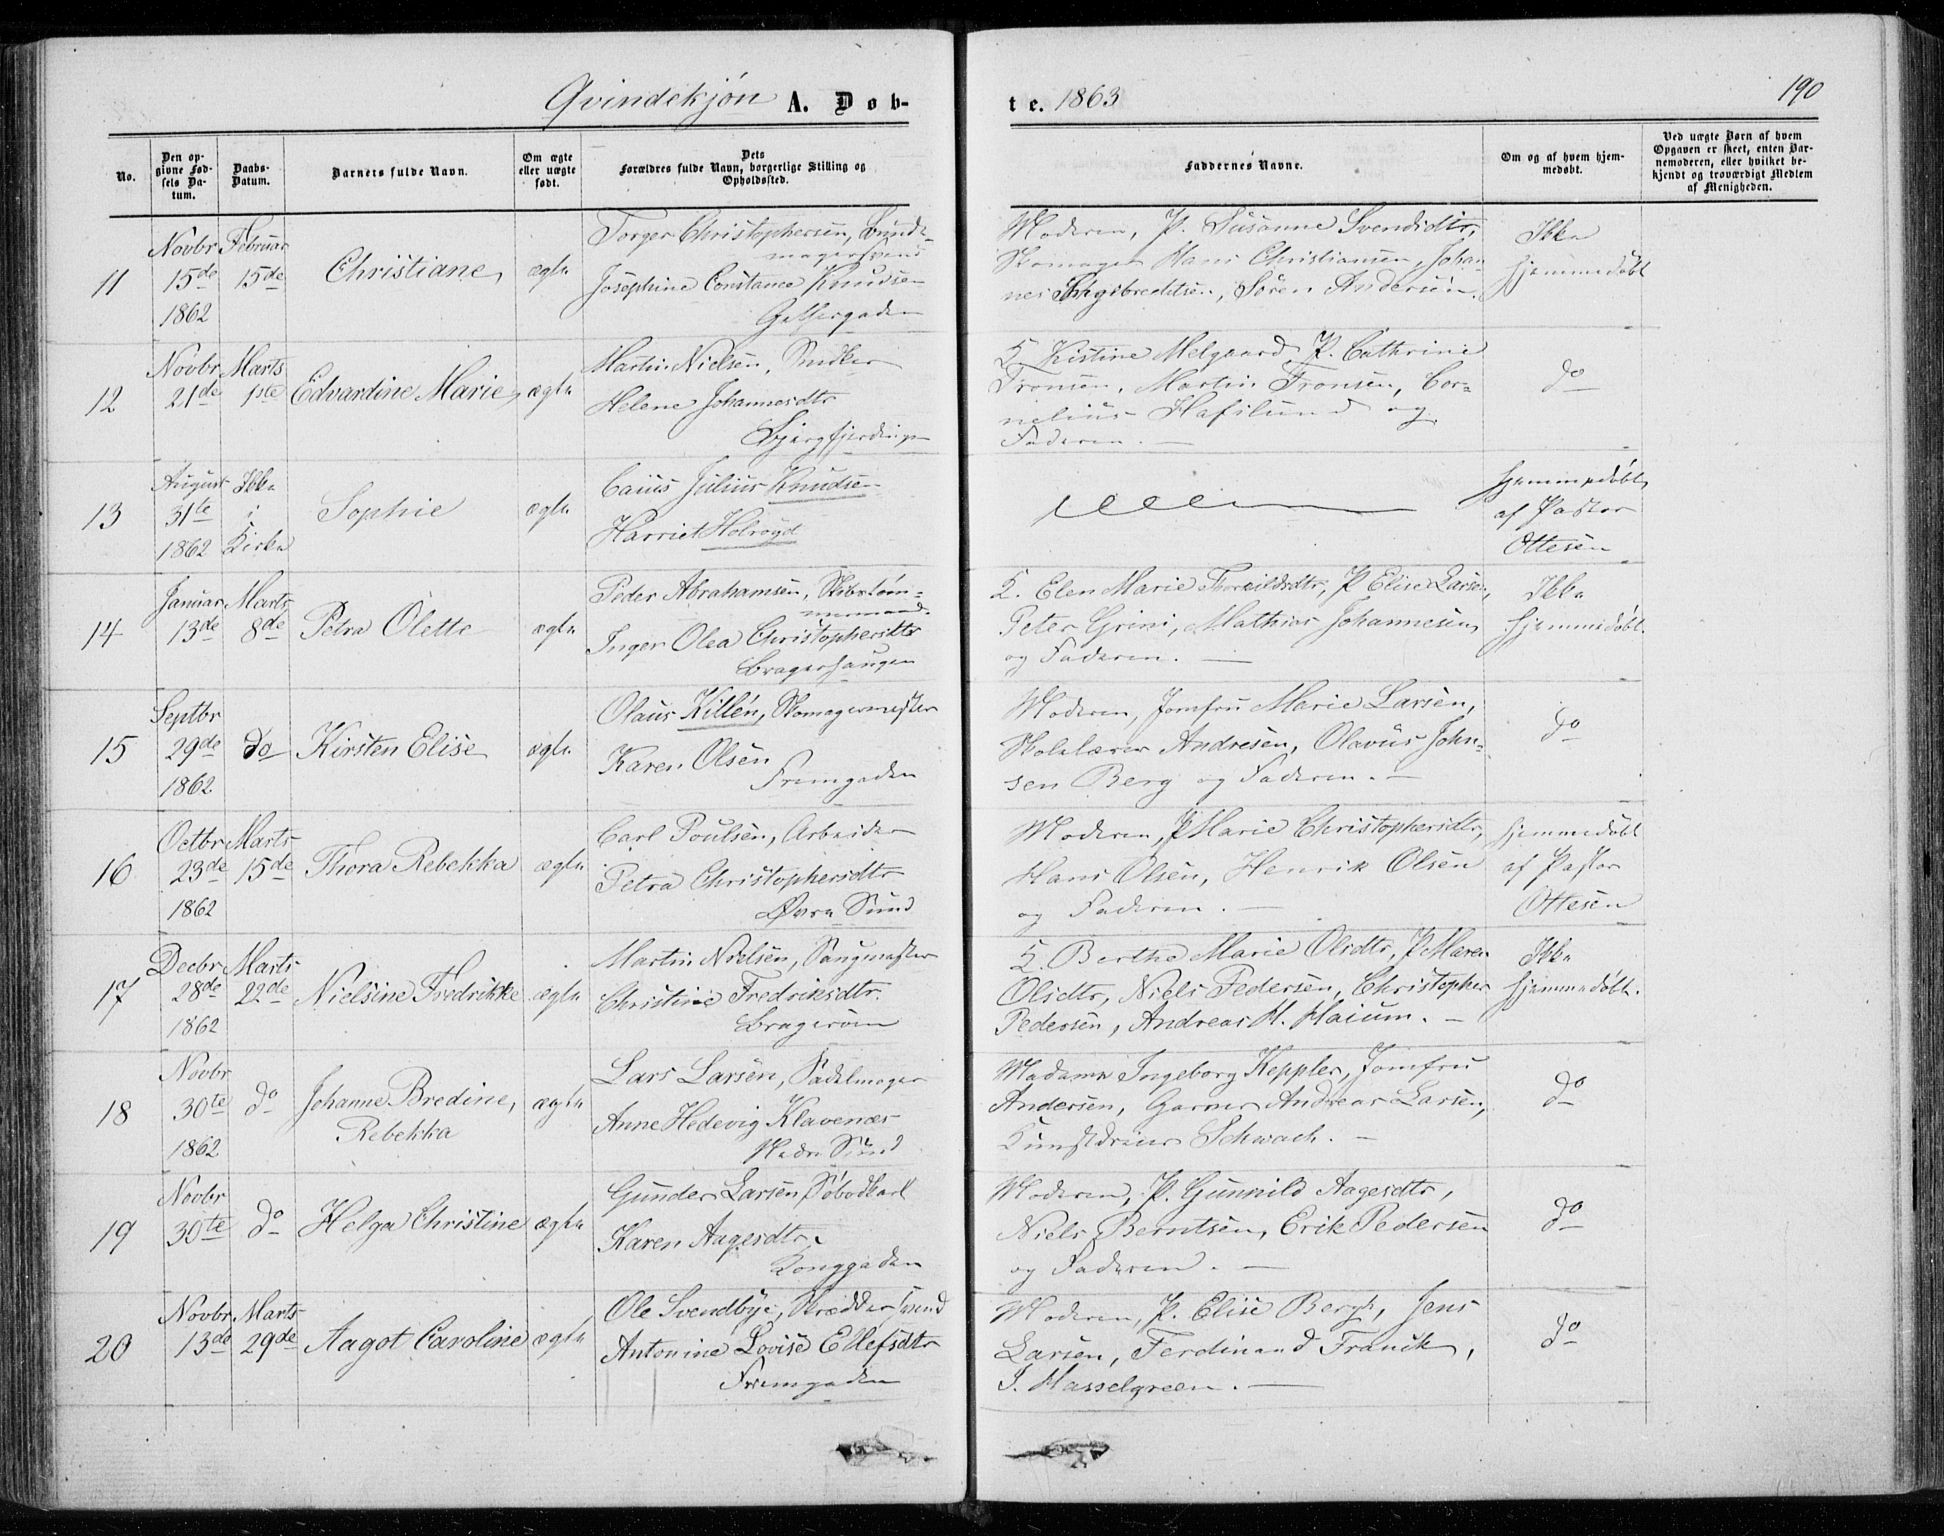 Qvindekjön A. Døb-
te. 1863
190
No.
Den opgivne Fødsels Datum.
Daabs-Datum.
Barnets fulde Navn.
Om ægte eller uægte født.
Dets Forældres fulde Navn, borgerlige Stilling og Opholdssted.
Faddernes Navne.
Om og af hvem hjemmedøbt.
Ved uægte Børn af hvem Opgaven er skeet, enten Barnemoderen, eller hvilket bekjendt og troværdigt Medlem af Menigheden.
11
Novbr 15de 1862
Februar 15de
Christiane
ægte
Torger Christophersen, Bundtmagersvend
Josephine Constance Knudsen
Moderen, P. Susanne Svendsdtr,
Skomager Hans Christiansen, Johan-
nes Ingebrechtsen, Sören Andersen.
Ikke hjemmedøbt
12
Novbr 21de
Marts 1ste
Edvardine Marie
ægte
Martin Nielsen, Snedker
Helene Johannesdtr
Bjergfjerdingen
K. Kistine Melgaard, P. Cathrine
Tronsen, Martin Tronsen, Cor-
nelius Hafslund og
Faderen. —
do
13
August 31te 1862
Ikke i Kirke
Sophie
ægte
Caius Julius Knudsen
Harriet Holroyd
Hjemmedøbt
af Pastor
Ottesen
14
Januar 13de
Marts 8de
Petra Olette
ægte
Peder Abrahamsen, Skibstöm-
mermand.
Inger Olea Christophersdtr
Bragerhaugen
K. Elen Marie Thorvildsdtr, P Elise Larsen,
Peter Grini, Mathias Johannesen,
og Faderen. —
Ikke
hjemmedøbt.
15
Septbr 29de 1862
do
Kirsten Elise
ægte
Olaus Killén, Skomagermester
Karen Olsen
Fremgaden
Moderen, Jomfru Marie Larsen,
Skolelærer Andresen, Olavus John-
sen Berg og Faderen. —
do
16
Octbr 23de 1862
Marts 15de
Thora Rebekka
ægte
Carl Poulsen, Arbeider
Petra Christophersdtr
Øvre Sund
Moderen, P Marie Christophersdtr,
Hans Olsen, Henrik Olsen
og Faderen. —
Hjemmedøbt
af Pastor
Ottesen
17
Decbr 28de 1862
Marts 22de
Nielsine Fredrikke
ægte
Martin Nielsen, Saugmester
Christine Fredriksdtr.
Bragerøen
K. Berthe Marie Olsdtr, P Maren
Olsdtr, Niels Pedersen, Christopher
Pedersen, Andreas H. Haium. —
Ikke
hjemmedøbt.
18
Novbr 30te 1862
do
Johanne Bredine,
Rebekka
ægte
Lars Larsen, Sadelmager
Anne Hedevig Klavenæs
Nedre Sund
Madame Ingeborg Keppler, Jomfru
Andersen, Garver Andreas Larsen,
Kunstdreier Schwach. —
do
19
Novbr 30te
do
Helga Christine
ægte
Gunder Larsen,
Karen Aagesdtr.
Konggaden
Moderen, P. Gunhild Aagesdtr,
Niels Berntsen, Erik Pedersen
og Faderen. —
do
20
Novbr 13de
Marts 29de
Aagot Caroline
ægte
Ole Svendbye, Skrædder svend
Antonine Lovise Ellefsdtr
Fremgaden
Moderen, P. Elise Bergh, Jens
Larsen, Ferdinand Franck,
J. Hasselgreen. —
do